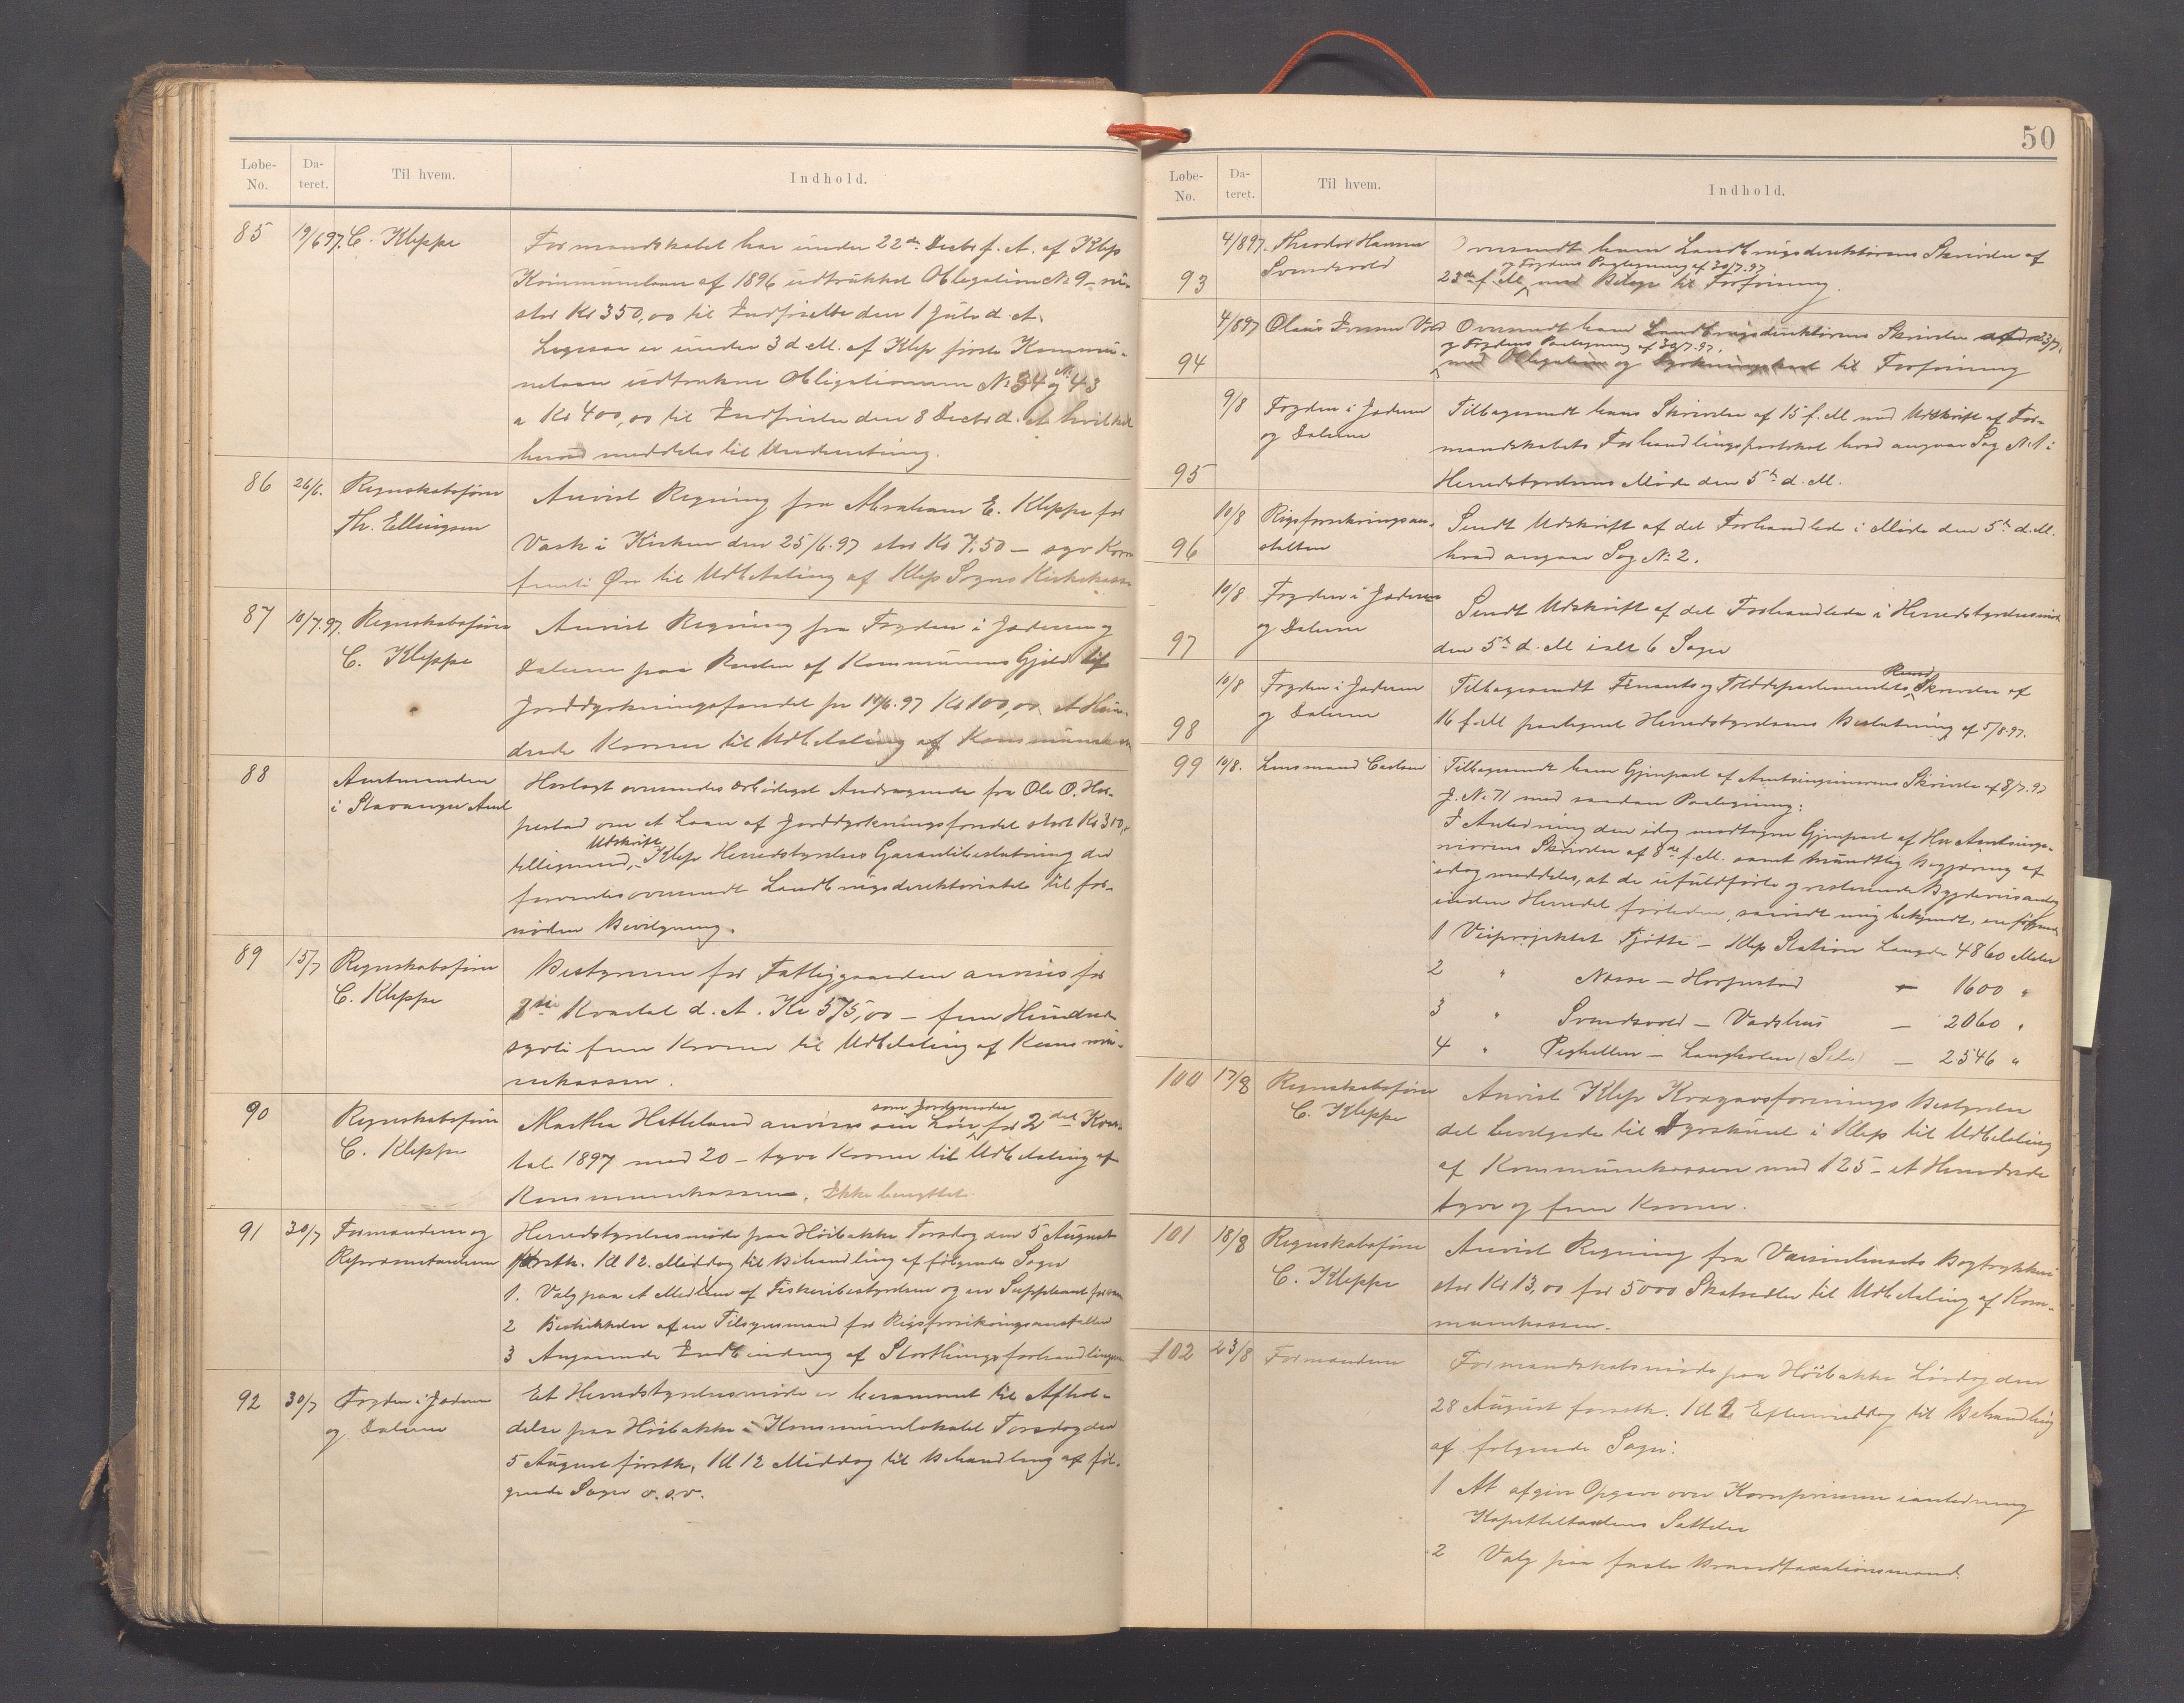 Løbe-No. Da-teret. Til hvem. Indhold.
85 19/6 97. C. Kleppe
Formandskabet har under 22de Decbr f. A. af Klep
Kommunelaan af 1896 udtrukket Obligation No 9 –
stor Kr 350,00 til Indfrielse den 1 Juli d. A.
Ligesaa er under 3 d. M. af Klep første Kommu-
nelaan udtrukne Obligationerne No 34 og No 43
a Kr 400,00 til Indfrielse den 8 Decbr d. A. hvilket
herved meddeles til Underretning.
86 26/6. Regnskabsfører
Th. Ellingsen
Anvist Regning fra Abraham E. Kleppe for
Vask i Kirken den 25/6. 97 stor Kr 7,50 – syv Kron
femti Øre til Udbetaling af Klep Sogns Kirkekasse
87 10/7. 97. Regnskabsfører
C. Kleppe
Anvist Regning fra Fogden i Jæderen og
Dalerne paa Renter af Kommunens Gjeld til
Jorddyrkningsfondet pr 14/6. 97 Kr 100,00 et Hun-
drede Kroner til Udbetaling af Kommunekassen
88 Amtmanden
i Stavanger Amt
Hoslagt oversendes Andragende fra Ole O. Hor-
pestad om et Laan af Jorddyrkningsfondet stort Kr 300,
tilligemed Udskrift Klep Herredstyrelses Garantibeslutning der
forventes oversendt Landbrugsdirektoriatet til for-
nøden Bevilgning.
89 15/7 Regnskabsfører
C. Kleppe
Bestyreren for Fattiggaarden anvises for
Kvartal d. A. Kr 575,00 – fem Hundrede
sytti fem Kroner til Udbetaling af Kommu-
nekassen.
90 Regnskabsfører
C. Kleppe
Martha Hatteland anvises sin Løn som Jordmoder for 2det Kvar-
tal 1897 med 20 – tyve Kroner til Udbetaling af
Kommunekassen. Ikke benyttet.
91 30/7 Formændene og
Repræsentanterne
Herredstyrelsesmøde paa Höibakke Torsdag den 5 August
førstk. Kl 12. Middag til Behandling af følgende Sager
1. Valg paa et Medlem af Fiskeribestyrelsen og en Suppleant for ham
2 Beskikkelse af en Tilsynsmand for Rigsforsikringsanstalten
3 Angaaende Indbinding af Storthingsforhandlingen
92 30/7 Fogden i Jæderen
og Dalerne
Et Herredstyrelsesmøde er berammet til Afhol-
delse paa Höibakke i Kommunelokalet Torsdag den
5 August førstk. Kl 12 Middag til Behandling af føl-
gende Sager o.s.v.
50
Løbe-No. Da-teret. Til hvem. Indhold.
93 4/8 97. Theodor Hansen
Svendsvold
Oversendt ham Landbrugsdirektørens Skrivelse af
og Fogdens Paategning af 30/7. 97
23de f. M. med Bilage til Forføining.
94 4/8 97 Olaus Iversen Vold
Oversendt ham Landbrugsdirektørens Skrivelse af 23/7.
og Fogdens Paategning af 30/7. 97.
med Obligation og Dyrkningskart til Forføining
95 9/8 Fogden i Jæderen
og Dalerne
Tilbagesendt hans Skrivelse af 15 f. M. med Udskrift af For-
mandskabets Forhandlingsprotokol hvad angaar Sag No 1 i
Herredstyrelsens Møde den 5te d. M.
96 10/8 Rigsforsikringsan-
stalten
Sendt Udskrift af det Forhandlede i Møde den 5te d. M.
hvad angaar Sag No 2.
97 10/8 Fogden i Jæderen
og Dalerne
Sendt Udskrift af det Forhandlede i Herredstyrelsesmøde
den 5te d. M. ialt 6 Sager
98 10/8 Fogden i Jæderen
og Dalerne
Tilbagesendt Finants og Tolddepartementets Rund Skrivelse af
16 f. M. paategnet Herredstyrelsens Beslutning af 5/8. 97.
99 10/8. Lensmand Carlsen
Tilbagesendt ham Gjenpart af Amtsingeniørens Skrivelse af 8/7. 97
J. No 71 med saadan Paategning:
I Anledning den idag modtagne Gjenpart af Hr. Amtsinge-
niørens Skrivelse af 8de f. M. samt mundtlig Begjæring af
idag meddeles, at de ufuldførte og resterende Bygdeveisanlæg
inden Herredet, saavidt mig bekjendt, ere følgende
1 Veiprojektet Tjøtta – Klep Station Længde 4860 Meter
2 " Næse – Horpestad – 1600 "
3 " Svendsvold – Vadshus – 2060 "
4 " – Langholen (Sele) – 2546 "
100 17/8 Regnskabsfører
C. Kleppe
Anvist Klep Kvægavlsforenings Bestyrelse
det bevilgede til Dyrskuet i Klep til Udbetaling
af Kommunekassen med 125 – et Hundrede
tyve og fem Kroner.
101 18/8 Regnskabsfører
C. Kleppe
Anvist Regning fra Vaisenhusets Bogtrykkeri
stor Kr 13,00 for 5000 Skatsedler til Udbetaling af Kom-
munekassen.
102 23/8 Formændene
Formandskabsmøde paa Höibakke Lørdag den
28 August førstk. Kl 2 Eftermiddag til Behandling
af følgende Sager:
1 At afgive Opgave over Kornpriserne i anledning
Kapitelstaxtens Sættelse
2 Valg paa faste Brandtaxationsmænd.